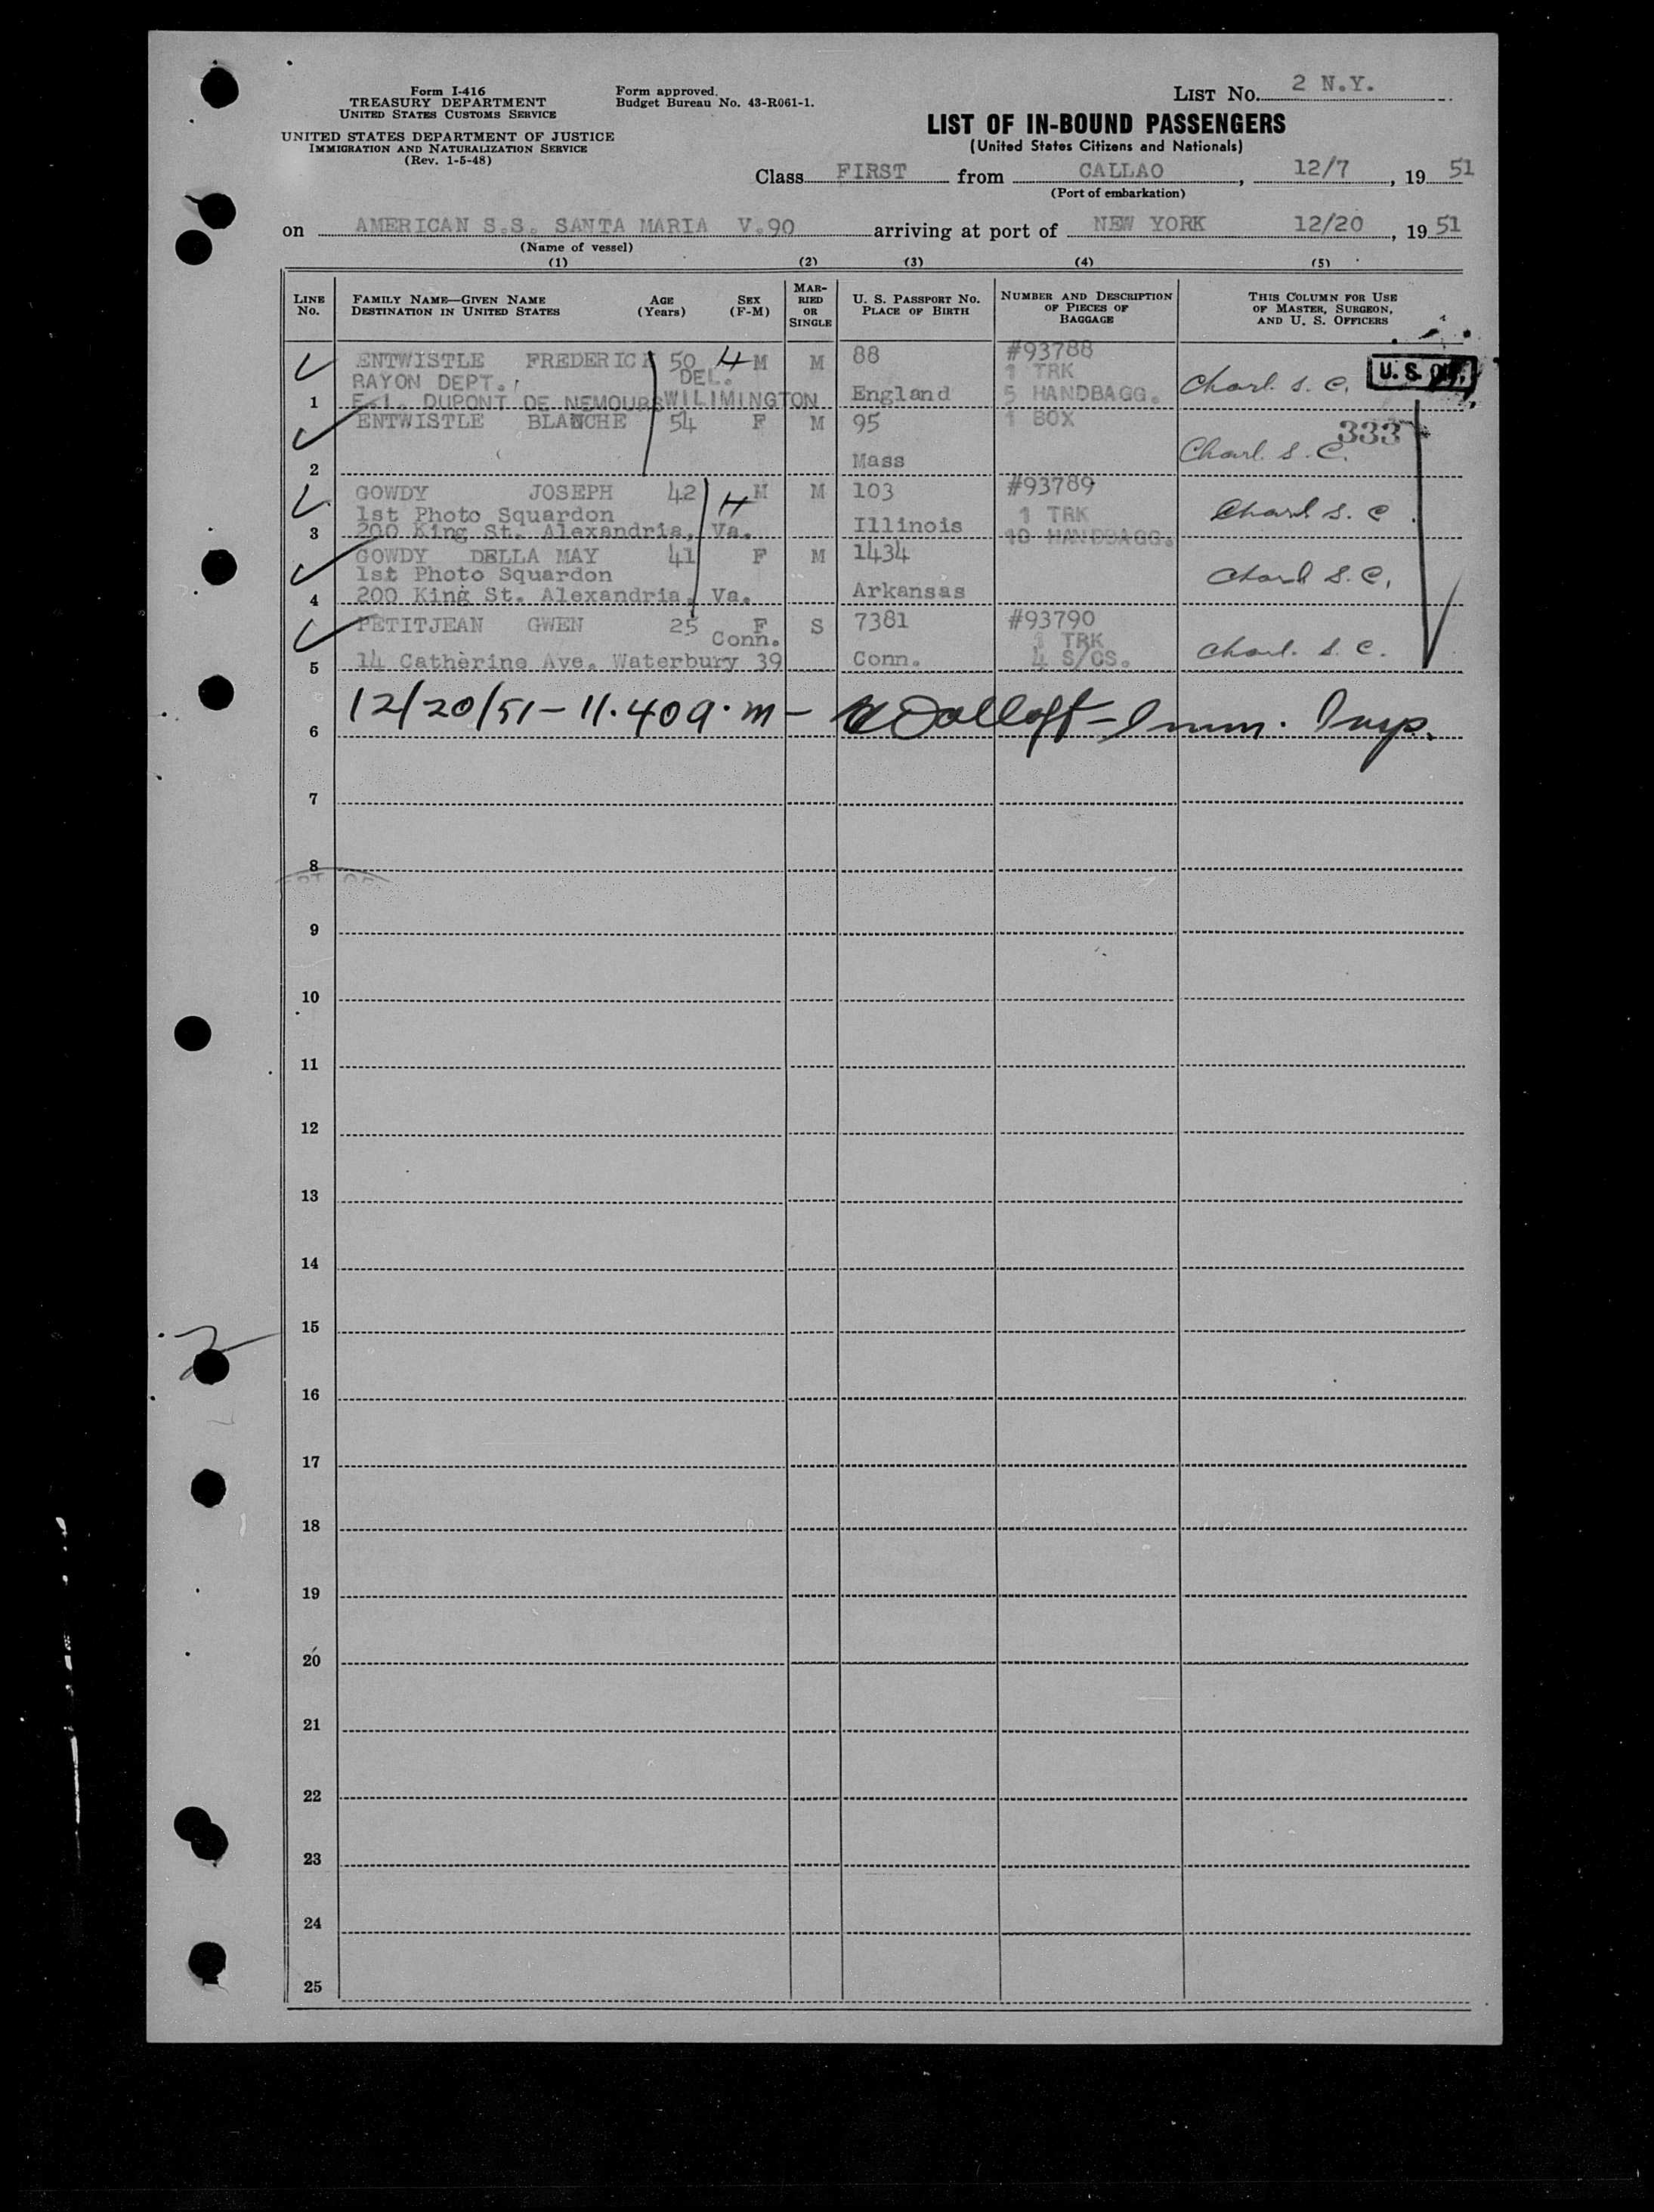 Form I-416
TREASURY DEPARTMENT
UNITED STATES CUSTOMS SERVICE
UNITED STATES DEPARTMENT OF JUSTICE
IMMIGRATION AND NATURALIZATION SERVICE
(Rev. 1-5-48)
Form approved.
Budget Bureau No. 43-R061-1.
LIST NO. 2 N.Y.
LIST OF IN-BOUND PASSENGERS
(United States Citizens and Nationals)
Class FIRST from CALLAO, 12/7, 19 51
(Port of embarkation)
on AMERICAN S.S. SANTA MARIA V.90 arriving at port of NEW YORK 12/20, 19 51
(Name of vessel)
(1) (2) (3) (4) (5)
LINE NO.
FAMILY NAME—GIVEN NAME
DESTINATION IN UNITED STATES
AGE
(Years)
SEX
(F-M)
MAR-
RIED
OR
SINGLE
U. S. PASSPORT NO.
PLACE OF BIRTH
NUMBER AND DESCRIPTION
OF PIECES OF
BAGGAGE
THIS COLUMN FOR USE
OF MASTER, SURGEON,
AND U. S. OFFICERS
ENTWISTLE FREDERICK 50 4 M M 88 #93788
RAYON DEPT., DEL. 1 TRK
1 E.I. DUPONT DE NEMOURS WILIMINGTON England 5 HANDBAGG. Charl. S. C. U. S.
ENTWISTLE BLANCHE 54 F M 95 1 BOX 333
2 Mass Charl. S. C.
GOWDY JOSEPH 42 4 M M 103 #93789
1st Photo Squardon 1 TRK Charl S. C
3 200 King St. Alexandria, Va. Illinois 10 HANDBAGG.
GOWDY DELLA MAY 41 F M 1434
1st Photo Squardon Charl S. C.
4 200 King St. Alexandria, Va. Arkansas
PETITJEAN GWEN 25 F S 7381 #93790
Conn. 1 TRK
5 14 Catherine Ave. Waterbury 39 Conn. 4 S/CS. Charl. S. C.
6 12/20/51 - 11.40 a.m - Imm. Insp.
7
8
9
10
11
12
13
14
15
16
17
18
19
20
21
22
23
24
25
2